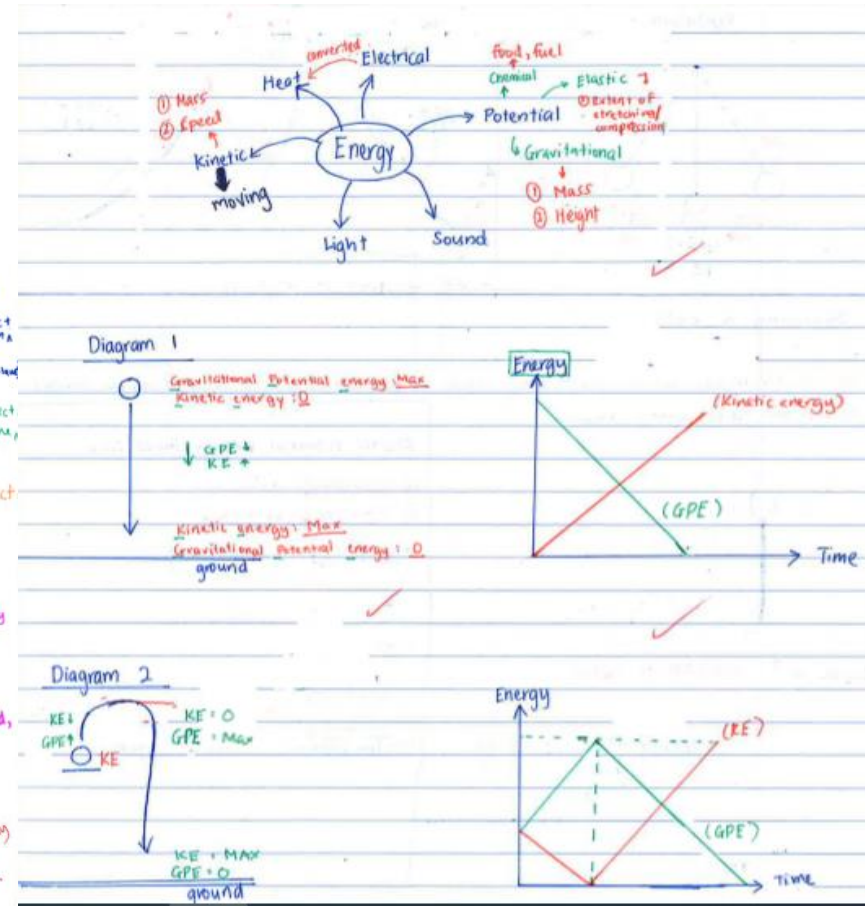 converted
Electrical
Heat
food, fuel
Chemical
Elastic
① Mass
② Speed
Potential
② Extent of
stretching/
compression
Kinetic
Energy
Gravitational
moving
① Mass
② Height
Light
Sound
Diagram 1
Gravitational Potential energy: Max
Kinetic energy: 0
↓ GPE ↓
KE ↑
Kinetic energy: Max
Gravitational Potential energy: 0
ground
Energy
(Kinetic energy)
(GPE)
Time
Diagram 2
KE↓
GPE↑
KE
KE = 0
GPE = Max
KE = MAX
GPE = 0
ground
Energy
(KE)
(GPE)
Time